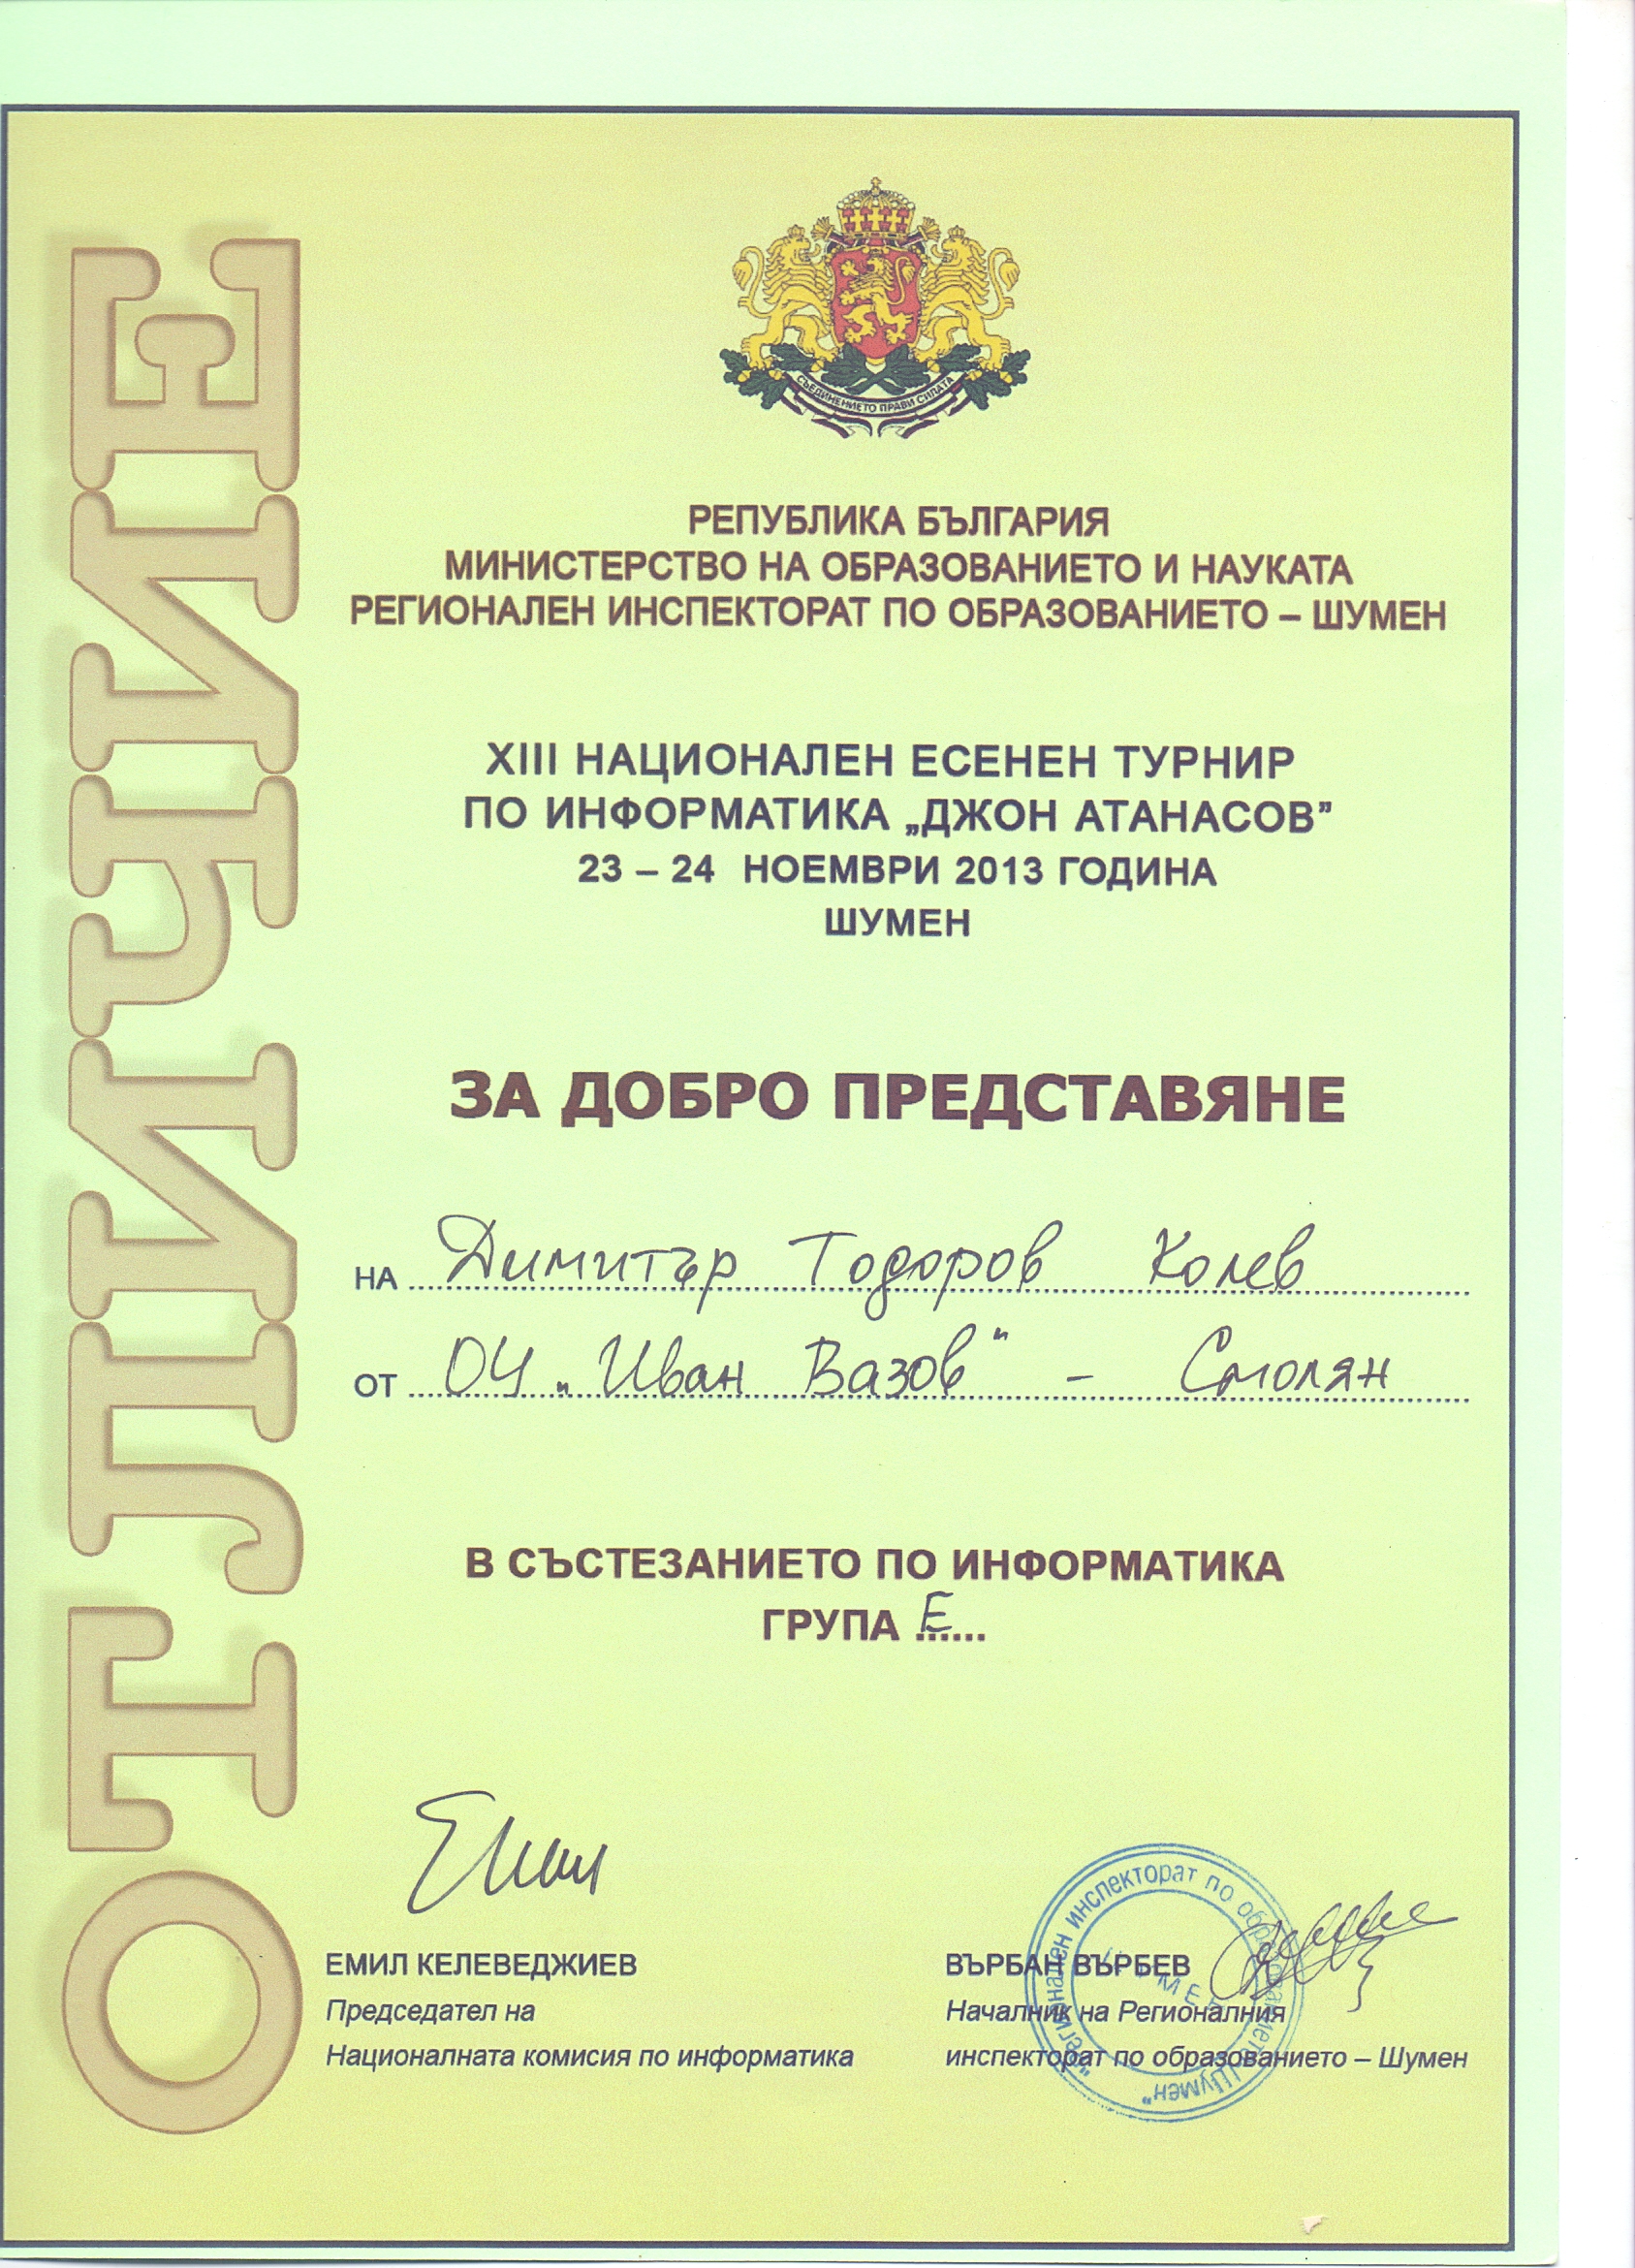 ОТЛИЧИЕ
СЪЕДИНЕНИЕТО ПРАВИ СИЛАТА
РЕПУБЛИКА БЪЛГАРИЯ
МИНИСТЕРСТВО НА ОБРАЗОВАНИЕТО И НАУКАТА
РЕГИОНАЛЕН ИНСПЕКТОРАТ ПО ОБРАЗОВАНИЕТО – ШУМЕН
XIII НАЦИОНАЛЕН ЕСЕНЕН ТУРНИР
ПО ИНФОРМАТИКА „ДЖОН АТАНАСОВ”
23 – 24 НОЕМВРИ 2013 ГОДИНА
ШУМЕН
ЗА ДОБРО ПРЕДСТАВЯНЕ
НА Димитър Тодоров Колев
ОТ ОУ „Иван Вазов“ - Смолян
В СЪСТЕЗАНИЕТО ПО ИНФОРМАТИКА
ГРУПА Е
ЕМИЛ КЕЛЕВЕДЖИЕВ
Председател на
Националната комисия по информатика
ВЪРБАН ВЪРБЕВ
Началник на Регионалния
инспекторат по образованието – Шумен
"Регионален инспекторат по образованието Шумен"
ШУМЕН